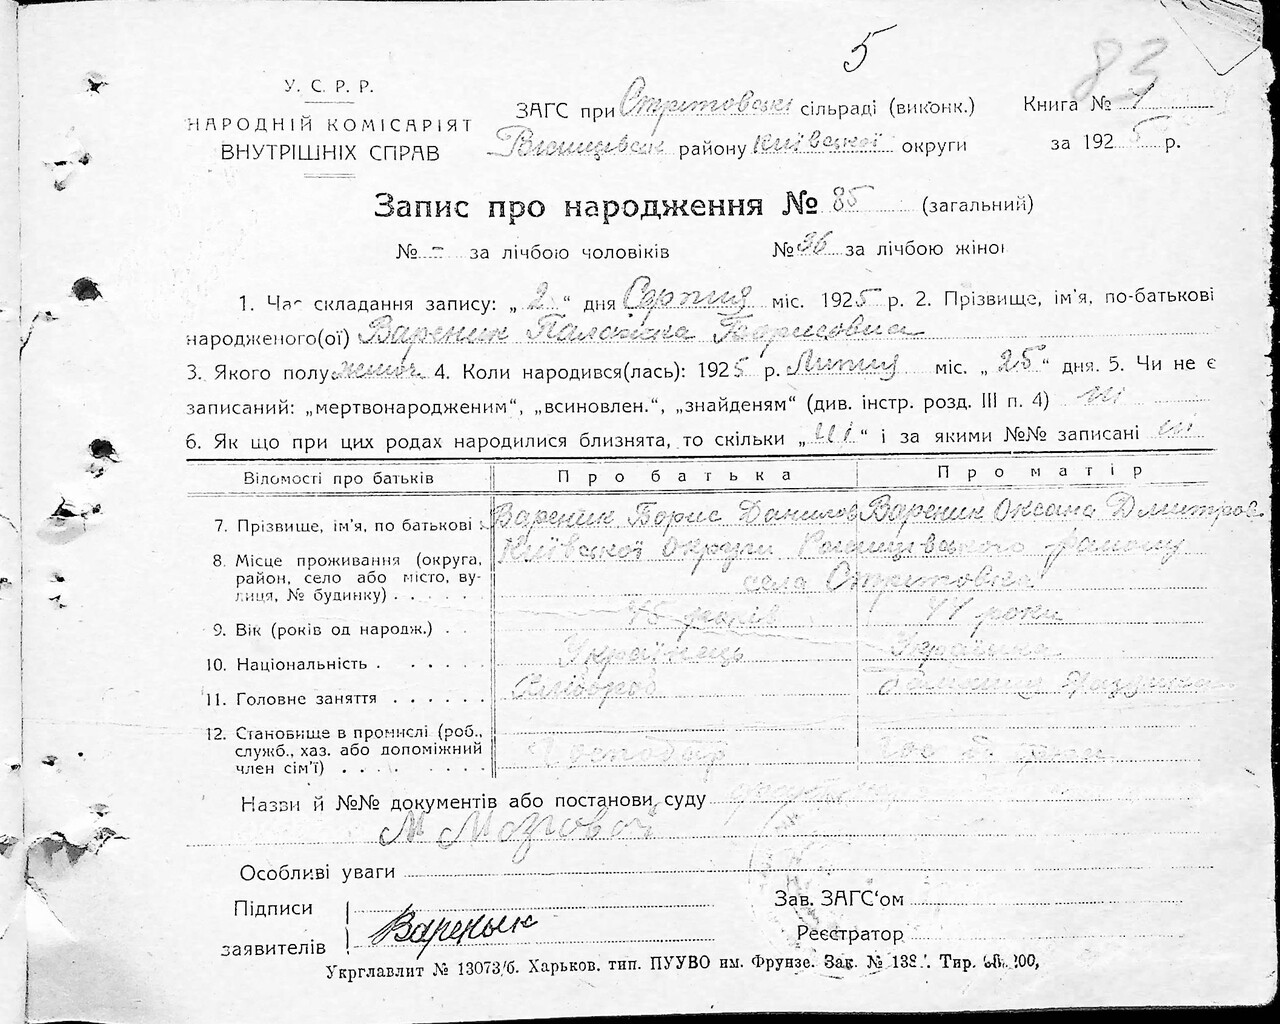 5
83
У. С. Р. Р.
НАРОДНІЙ КОМІСАРІЯТ
ВНУТРІШНІХ СПРАВ
ЗАГС при Стрітовські сільраді (виконк.)
району Київської округи
Книга № 1
за 1925 р.
Запис про народження № 85 (загальний)
№ - за лічбою чоловіків № 36 за лічбою жіно
1. Час складання запису: „ 2 “ дня Серпня міс. 1925 р. 2. Прізвище, ім'я, по-батькові
народженого(ої) Вареник Палажка Борисовна
3. Якого полу жіноч 4. Коли народився(лась): 1925 р. Липня міс. „ 25 “ дня. 5. Чи не є
записаний: „мертвонародженим“, „всиновлен.“, „знайденям“ (див. інстр. розд. III п. 4) ні
6. Як що при цих родах народилися близнята, то скільки „ ні “ і за якими №№ записані ні
Відомості про батьків Про батька Про матір
7. Прізвище, ім'я, по батькові Вареник Борис Данилов Вареник Оксана Дмитров
8. Місце проживання (округа, Київської округи району
район, село або місто, вулиця, № будинку) села Стрітовка
9. Вік (років од народж.) 46 років 44 роки
10. Національність Українець Українка
11. Головне заняття Хлібороб Домашня
12. Становище в промислі (роб.,
служб., хаз. або допоміжний Господар
член сім'ї)
Назви й №№ документів або постанови суду
М Мозговой
Особливі уваги
Підписи
заявителів Вареньик
Зав. ЗАГС‘ом
Реєстратор
Укрглавлит № 13073/б. Харьков. тип. ПУУВО им. Фрунзе. Зак. № 138 Тир.